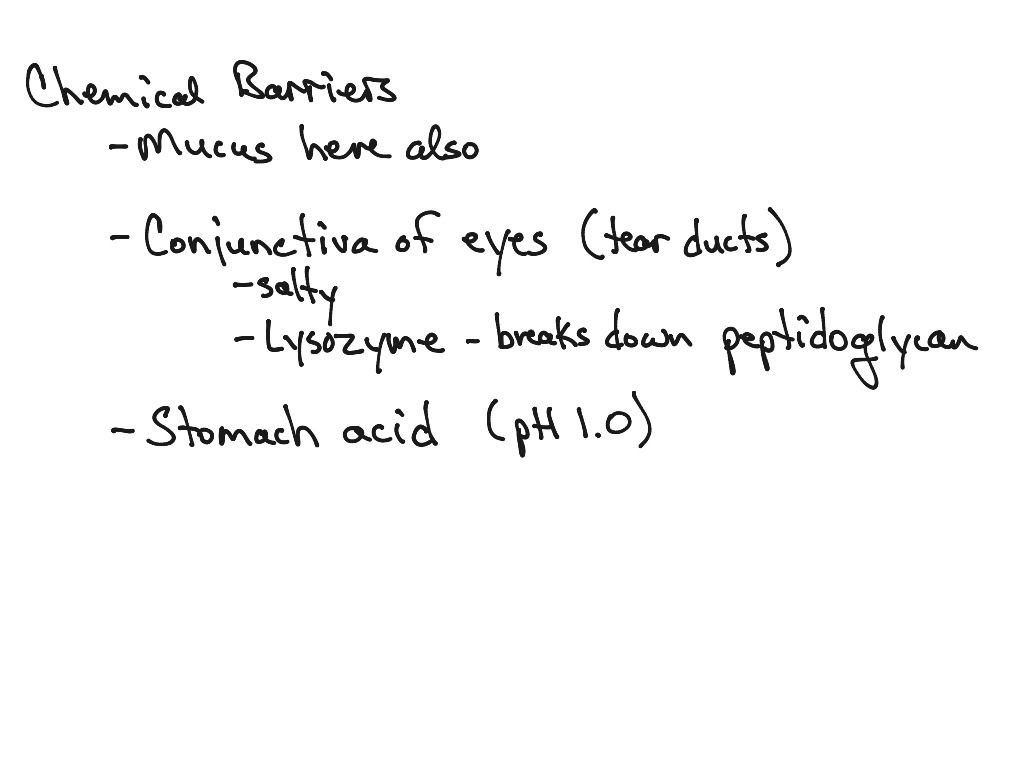 Chemical Barriers
- Mucus here also
- Conjunctiva of eyes (tear ducts)
- salty
- Lysozyme - breaks down peptidoglycan
- Stomach acid (pH 1.0)